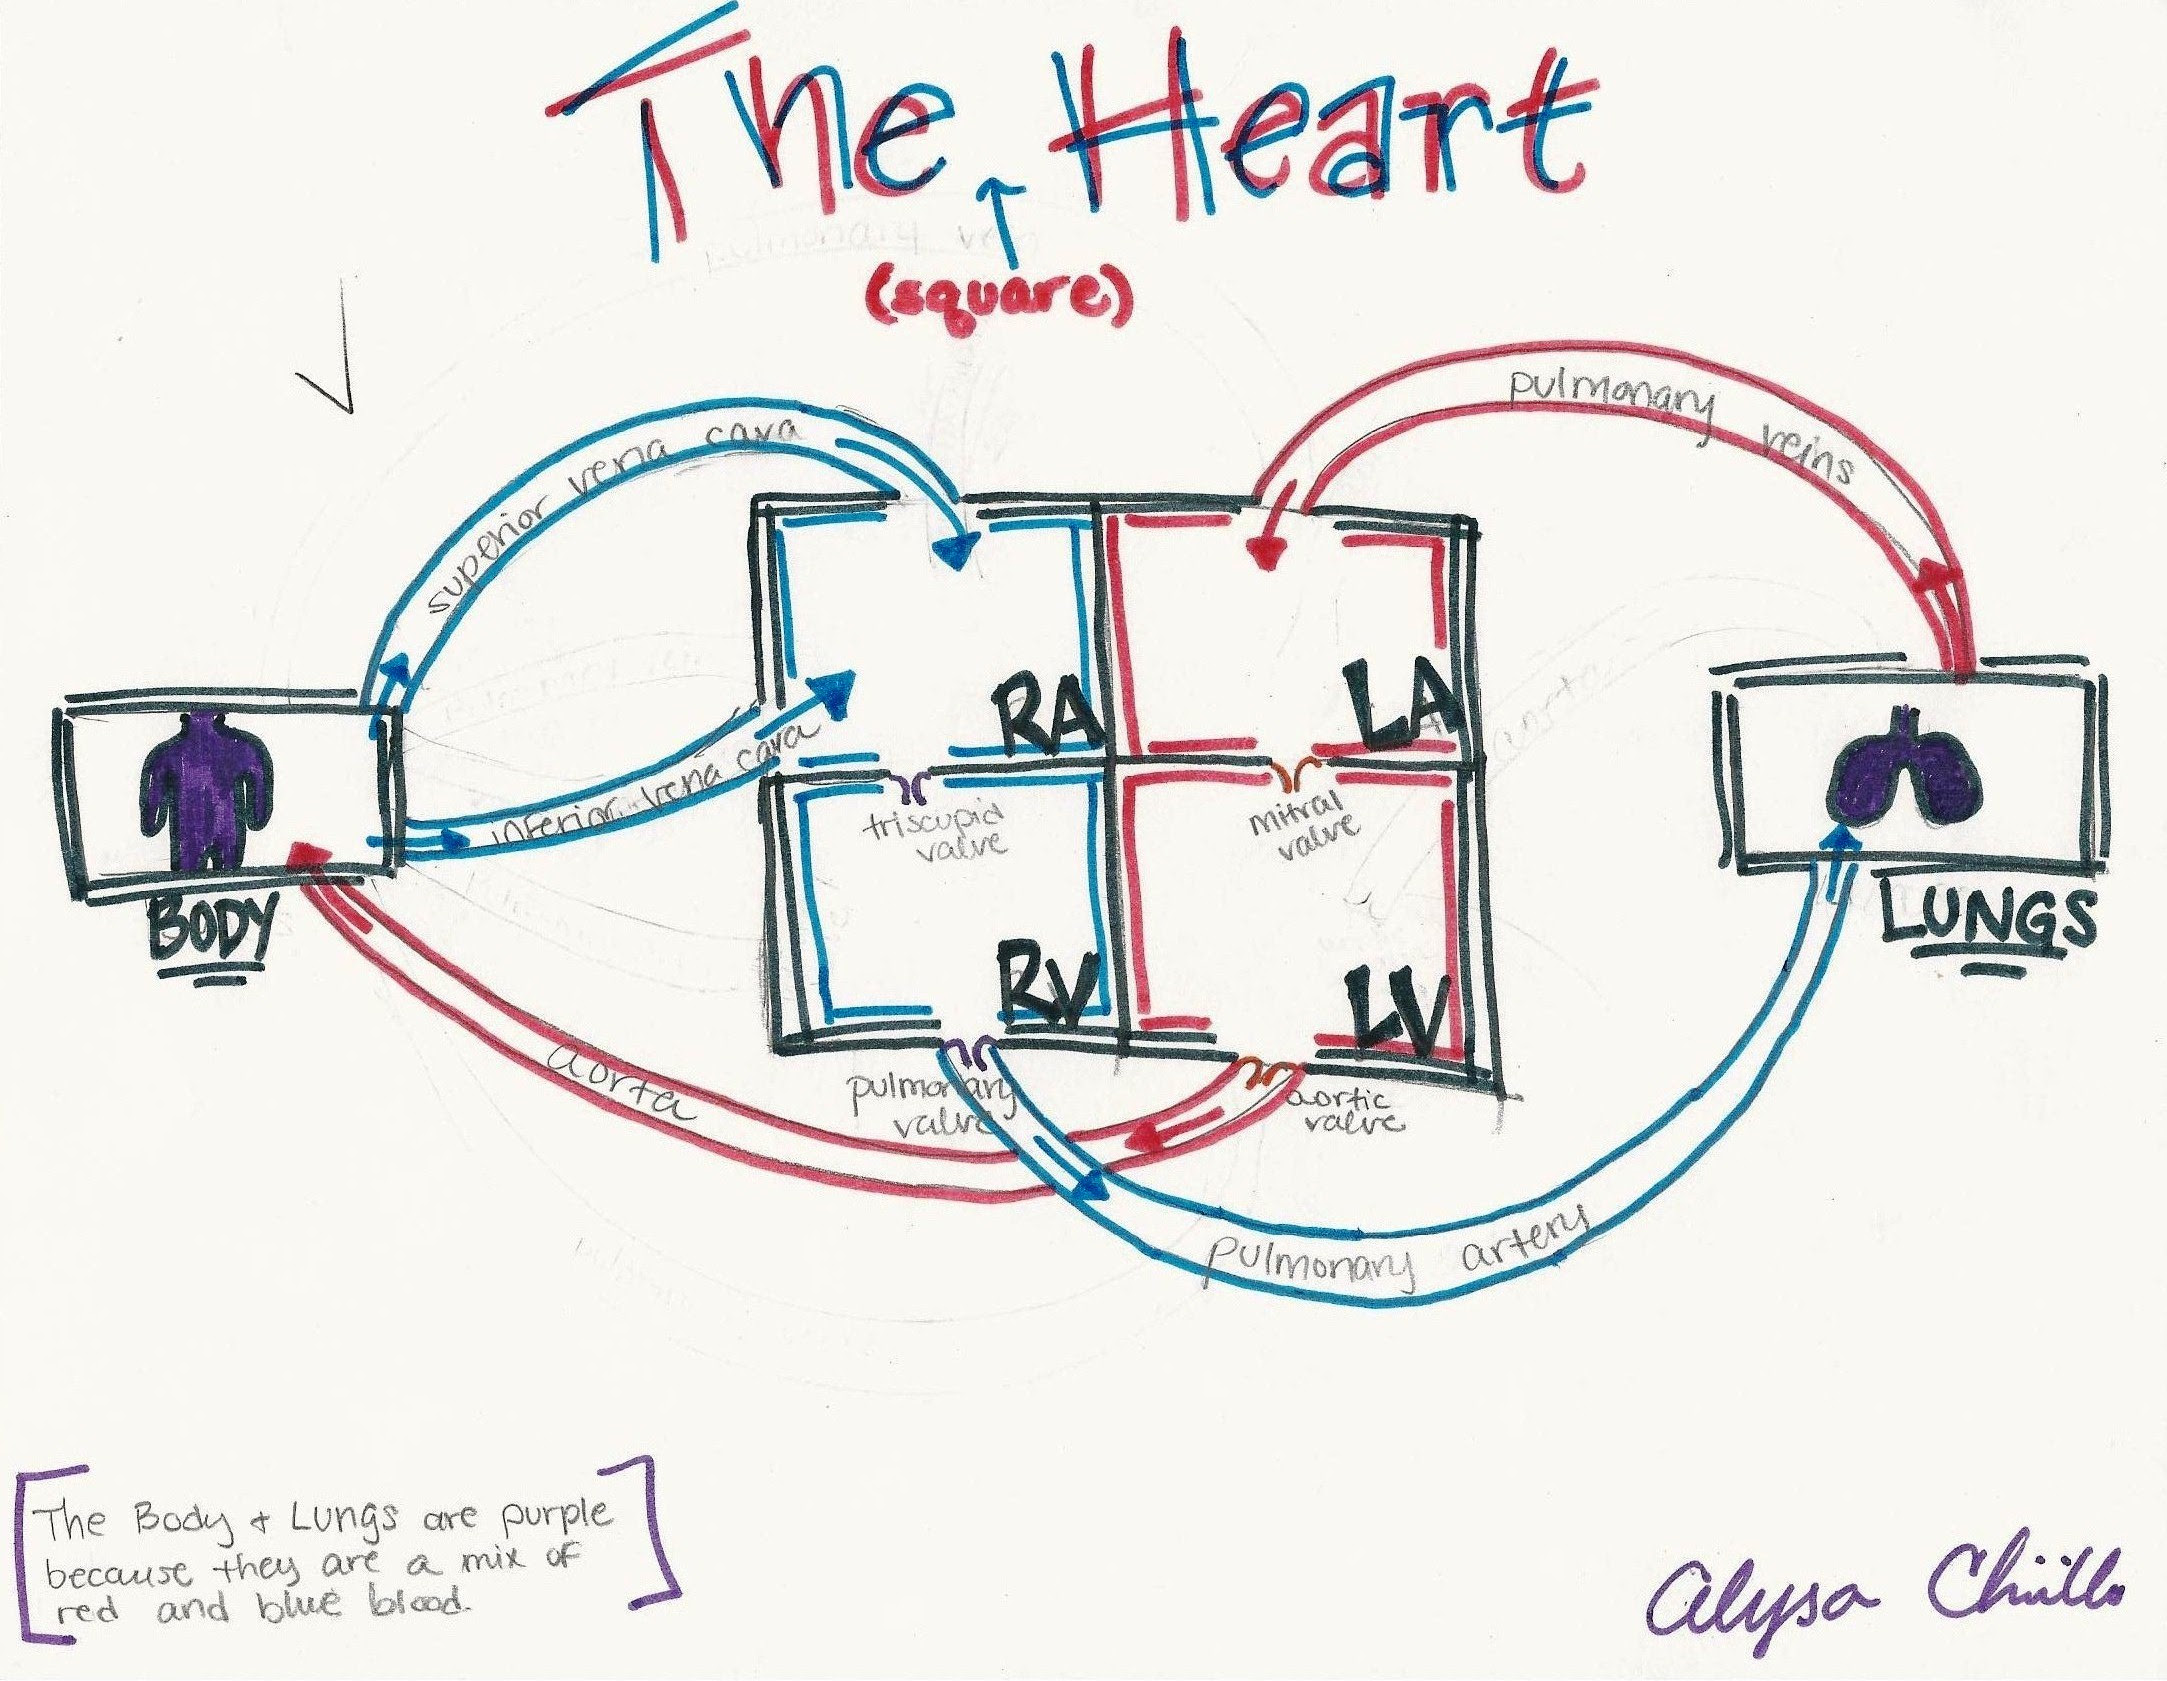 The Heart
(square)
pulmonary veins
superior vena cava
RA
LA
inferior vena cava
triscupid
valve
mitral
valve
BODY
LUNGS
RV
LV
aorta
pulmonary
valve
aortic
valve
pulmonary artery
The Body + Lungs are purple
because they are a mix of
red and blue blood.
Alysa